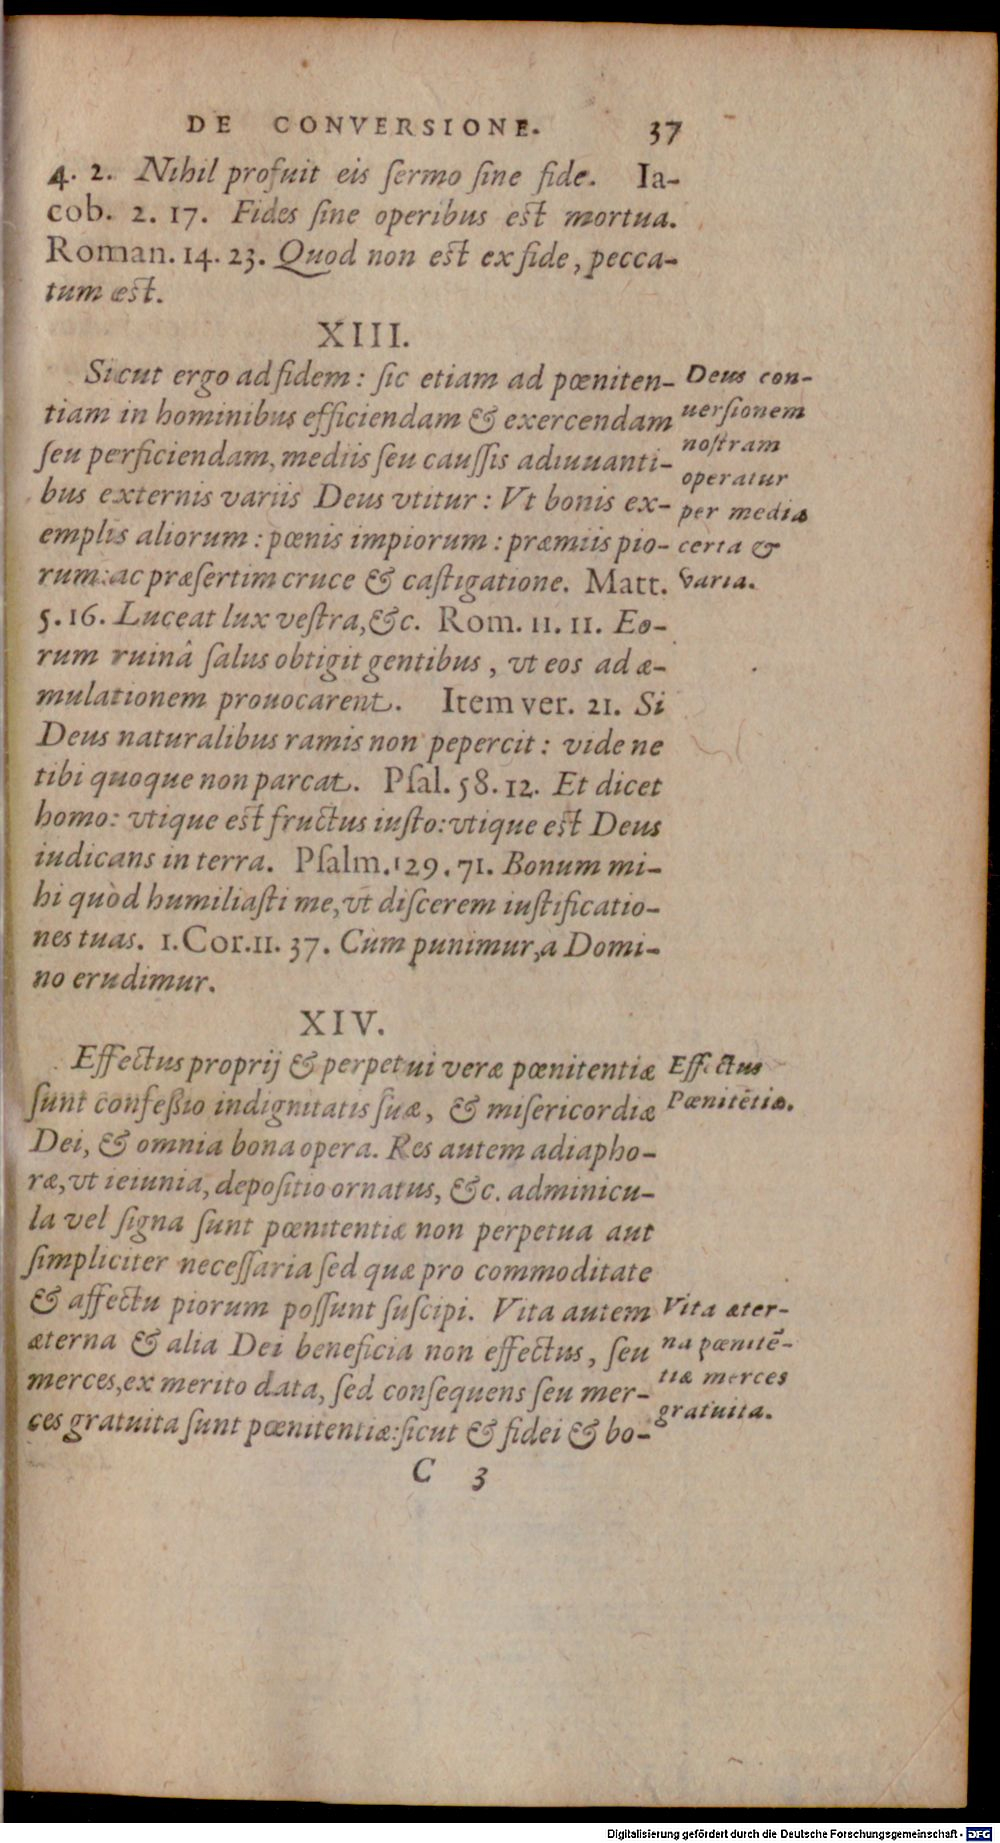 DE CONVERSIONE. 37
4. 2. Nihil profuit eis ſermo ſine fide. Ia-
cob. 2. 17. Fides ſine operibus est mortua.
Roman. 14. 23. Quod non est ex fide, pecca-
tum æst.
XIII.
Sicut ergo ad fidem : ſic etiam ad pœniten-
tiam in hominibus efficiendam & exercendam
ſeu perficiendam, mediis ſeu cauſſis adiuuanti-
bus externis variis Deus vtitur : Vt bonis ex-
emplis aliorum : pœnis impiorum : præmiis pio-
rum: ac præſertim cruce & caſtigatione. Matt.
5. 16. Luceat lux veſtra, &c. Rom. 11. 11. Eo-
rum ruinâ ſalus obtigit gentibus, vt eos ad æ-
mulationem prouocarent. Item ver. 21. Si
Deus naturalibus ramis non pepercit : vide ne
tibi quoque non parcat. Pſal. 58. 12. Et dicet
homo: vtique est fructus iuſto: vtique est Deus
iudicans in terra. Pſalm. 129. 71. Bonum mi-
hi quòd humiliaſti me, vt diſcerem iuſtificatio-
nes tuas. 1. Cor. 11. 37. Cùm punimur, a Domi-
no erudimur.
Deus con-
uerſionem
noſtram
operatur
per media
certa &
varia.
XIV.
Effectus proprij & perpetui veræ pœnitentiæ
ſunt confeßio indignitatis ſuæ, & miſericordiæ
Dei, & omnia bona opera. Res autem adiapho-
ræ, vt ieiunia, depoſitio ornatus, &c. adminicu-
la vel ſigna ſunt pœnitentiæ non perpetua aut
ſimpliciter neceſſaria ſed quæ pro commoditate
& affectu piorum poſſunt ſuſcipi. Vita autem
æterna & alia Dei beneficia non effectus, ſeu
merces, ex merito data, ſed conſequens ſeu mer-
ces gratuita ſunt pœnitentiæ: ſicut & fidei & bo-
Effectus
Pœnitẽtiæ.
Vita æter-
na pœnitẽ-
tiæ merces
gratuita.
C 3
Digitalisierung gefördert durch die Deutsche Forschungsgemeinschaft - DFG